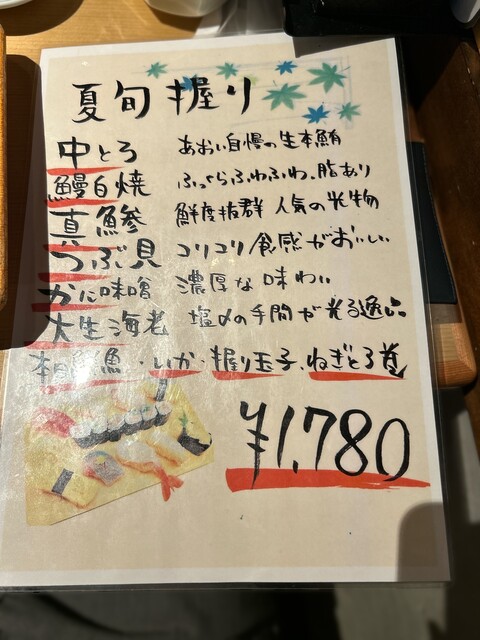 夏旬握り
中とろ あおい自慢の生本鮪
鰻白焼 ふっくらふわふわ、脂あり
真鯵 鮮度抜群 人気の光物
つぶ貝 コリコリ食感がおいしい
かに味噌 濃厚な味わい
大生海老 塩〆の手間が光る逸品
本日鮮魚・いか・握り玉子、ねぎとろ巻
¥1,780